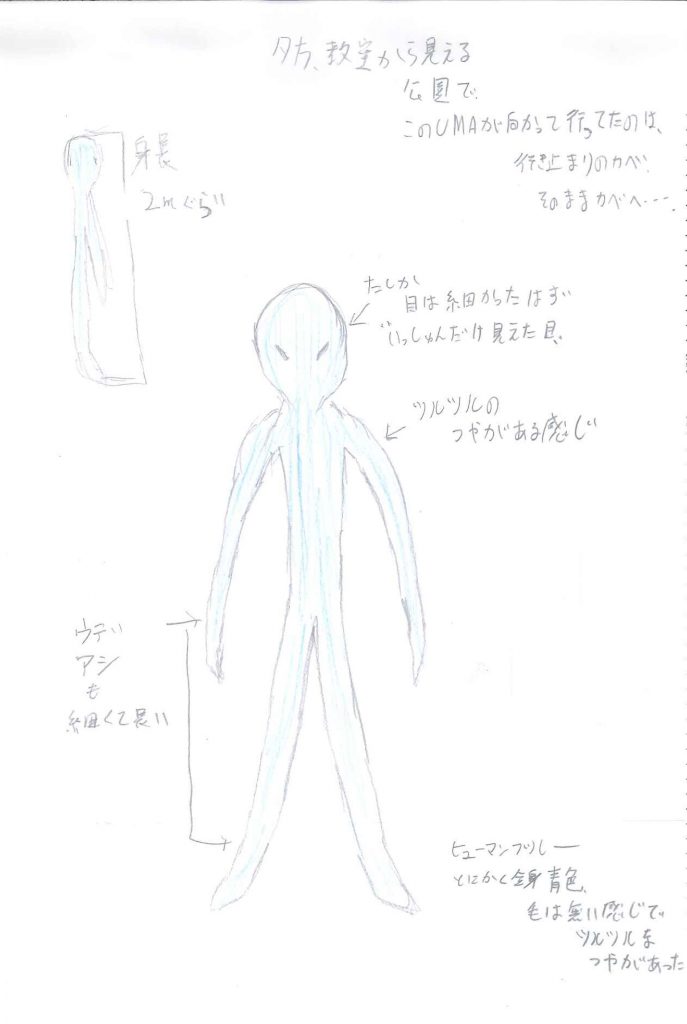 夕方、教室から見える
公園で
このUMAが向かって行ってたのは、
行き止まりのカベ。
そのままカベへ----.
身長
2mぐらい
たしか
目は細かったはず
いっしゅんだけ見えた目、
ツルツルの
つやがある感じ
ウデ
アシ
も
細くて長い
ヒューマンブルー
とにかく全身青色、
毛は無い感じで
ツルツルな
つやがあった